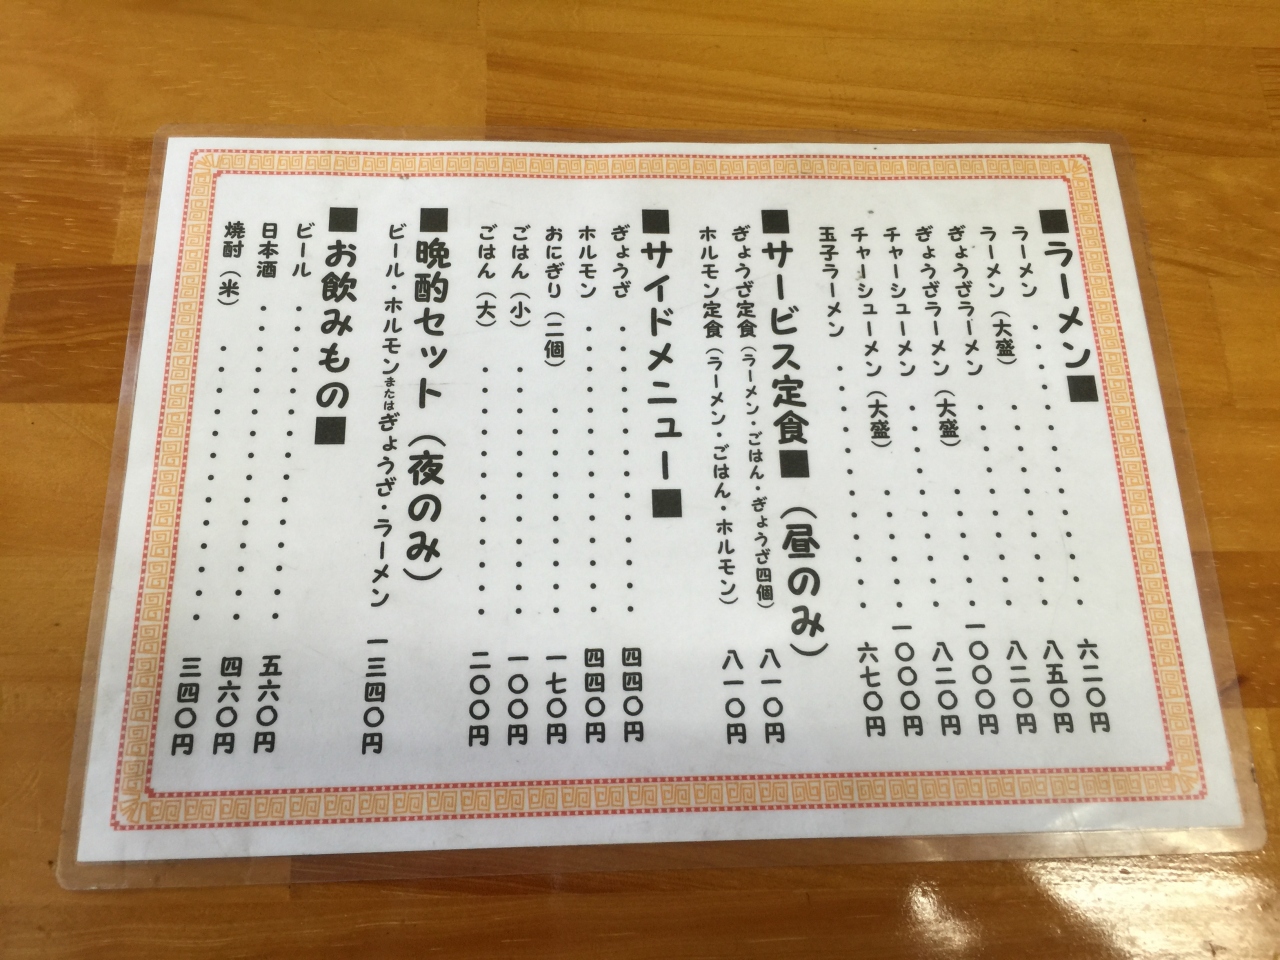 ■ラーメン■
ラーメン ・・・・・・・・ 六二〇円
ラーメン(大盛) ・・・・・・ 八五〇円
ぎょうざラーメン ・・・・・・ 八二〇円
ぎょうざラーメン(大盛) ・・・・ 一〇〇〇円
チャーシューメン ・・・・・・ 八二〇円
チャーシューメン(大盛) ・・・・ 一〇〇〇円
玉子ラーメン ・・・・・・・ 六七〇円
■サービス定食■(昼のみ)
ぎょうざ定食(ラーメン・ごはん・ぎょうざ四個) 八一〇円
ホルモン定食(ラーメン・ごはん・ホルモン) 八一〇円
■サイドメニュー■
ぎょうざ ・・・・・・・・ 四四〇円
ホルモン ・・・・・・・・ 四四〇円
おにぎり(二個) ・・・・・・ 一七〇円
ごはん(小) ・・・・・・・ 一〇〇円
ごはん(大) ・・・・・・・ 二〇〇円
■晩酌セット(夜のみ)
ビール・ホルモンまたはぎょうざ・ラーメン 一三四〇円
■お飲みもの■
ビール ・・・・・・・・・ 五六〇円
日本酒 ・・・・・・・・・ 四六〇円
焼酎(米) ・・・・・・・・ 三四〇円